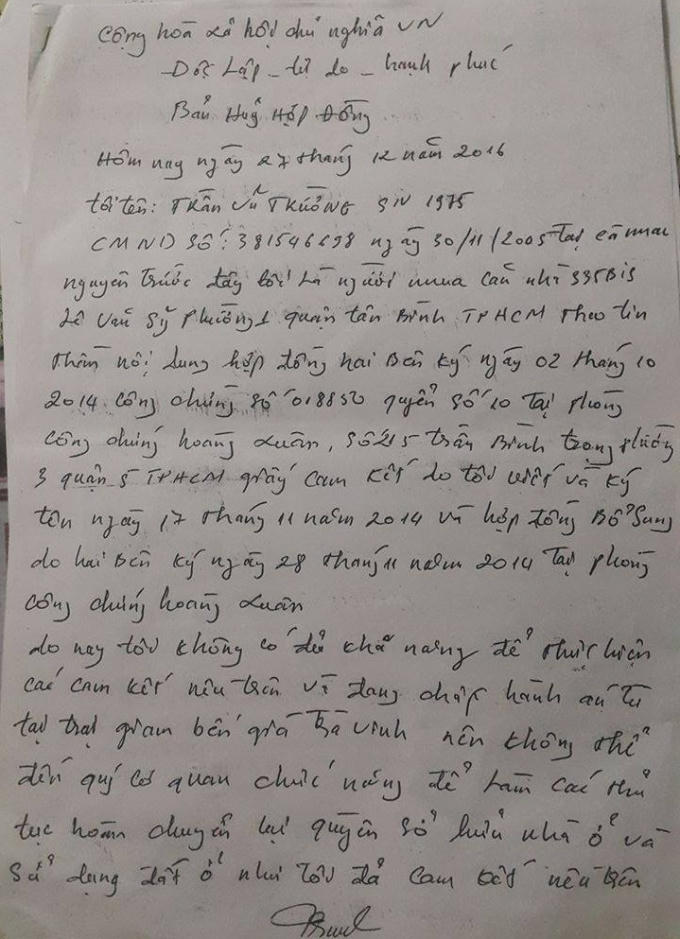 Cộng hoà xã hội chủ nghĩa VN
Độc Lập - tự do - hạnh phúc
Bản Huỷ Hợp Đồng
Hôm nay ngày 27 tháng 12 năm 2016
tôi tên: TRẦN VŨ TRƯỜNG SN 1975
CMND Số: 381546698 ngày 30/11/2005 tại cà mau
nguyên trước đây tôi là người mua căn nhà 335Bis
Lê Văn Sỹ phường 1 quận tân Bình TPHCM theo
nội dung hợp đồng hai Bên ký ngày 02 tháng 10
2014 công chứng số 018850 quyển số 10 Tại phòng
công chứng hoàng xuân, số 215 trần Bình trọng phường
3 quận 5 TPHCM giấy cam kết do tôi viết và ký
tên ngày 17 tháng 11 năm 2014 và hợp đồng Bổ sung
do hai Bên ký ngày 28 tháng 11 năm 2014 Tại phòng
công chứng hoàng xuân
do nay tôi không có đủ khả năng để thực hiện
các cam kết nêu trên vì đang chấp hành án tù
tại trại giam bến giá Trà vinh nên không thể
đến quý cơ quan chức năng để làm các thủ
tục hoàn chuyển lại quyền sở hữu nhà ở và
sử dụng đất ở như tôi đã cam kết nêu trên